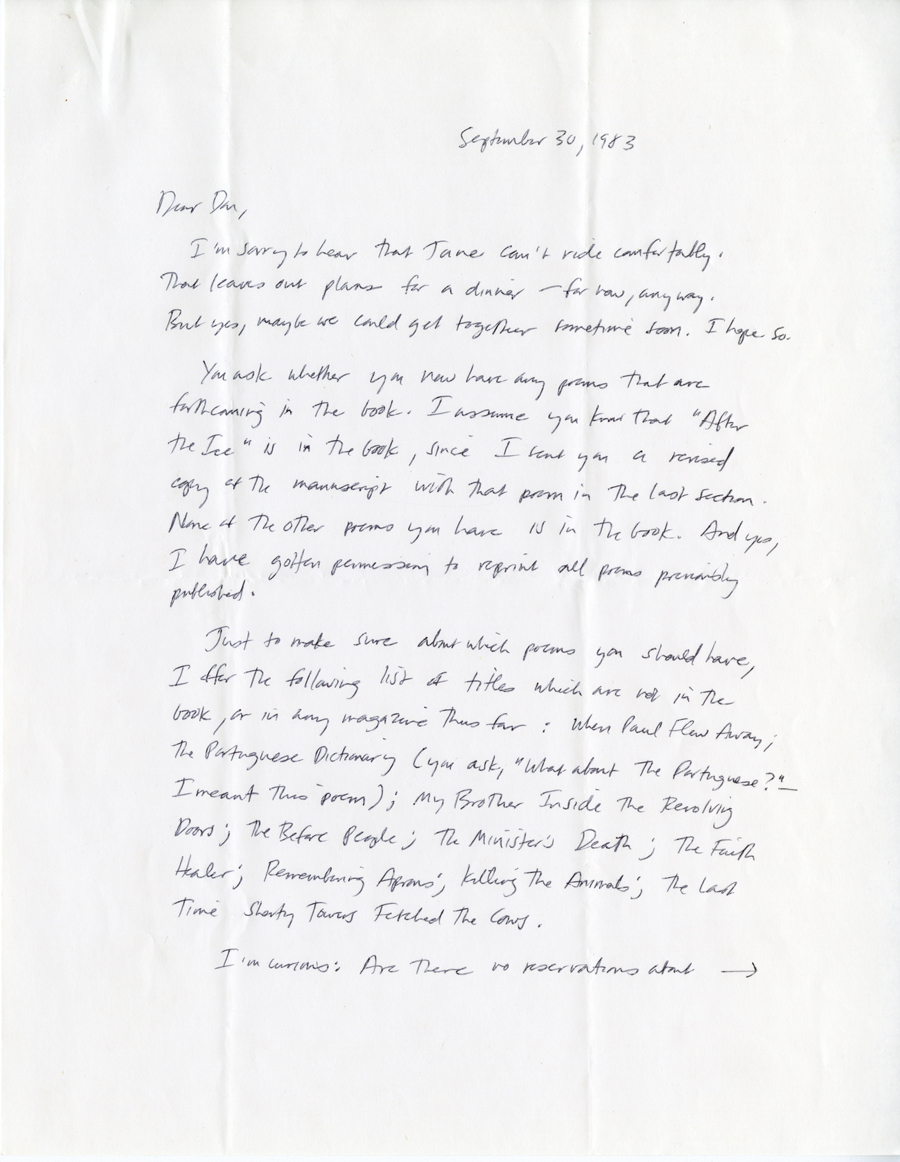 September 30, 1983
Dear Don,
I'm sorry to hear that Jane can't ride comfortably.
That leaves out plans for a dinner – for now, anyway.
But yes, maybe we could get together sometime soon. I hope so.
You ask whether you now have any poems that are
forthcoming in the book. I assume you know that "After
the Ice" is in the book, since I sent you a revised
copy of the manuscript with that poem in the last section.
None of the other poems you have is in the book. And yes,
I have gotten permission to reprint all poems previously
published.
Just to make sure about which poems you should have,
I offer the following list of titles which are not in the
book, or in any magazine thus far: When Paul Flew Away;
The Portuguese Dictionary (you ask, "What about The Portuguese?" –
I meant this poem); My Brother Inside The Revolving
Doors; The Before People; The Minister's Death; The Faith
Healer; Remembering Aprons; Killing The Animals; The Last
Time Shorty Towers Fetched The Cows.
I'm curious: Are there no reservations about →